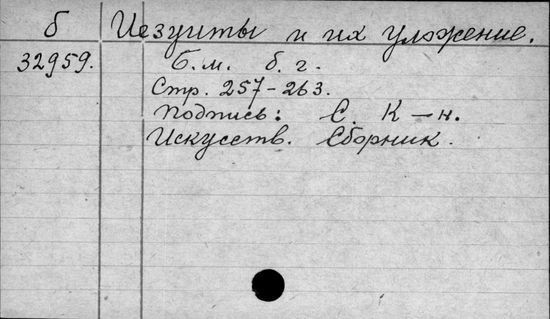 б Иезуиты и их уложение.
32959. Б.м. б.г.
Стр. 257-263.
Подпись: С. К-н.
Искусств. Сборник.